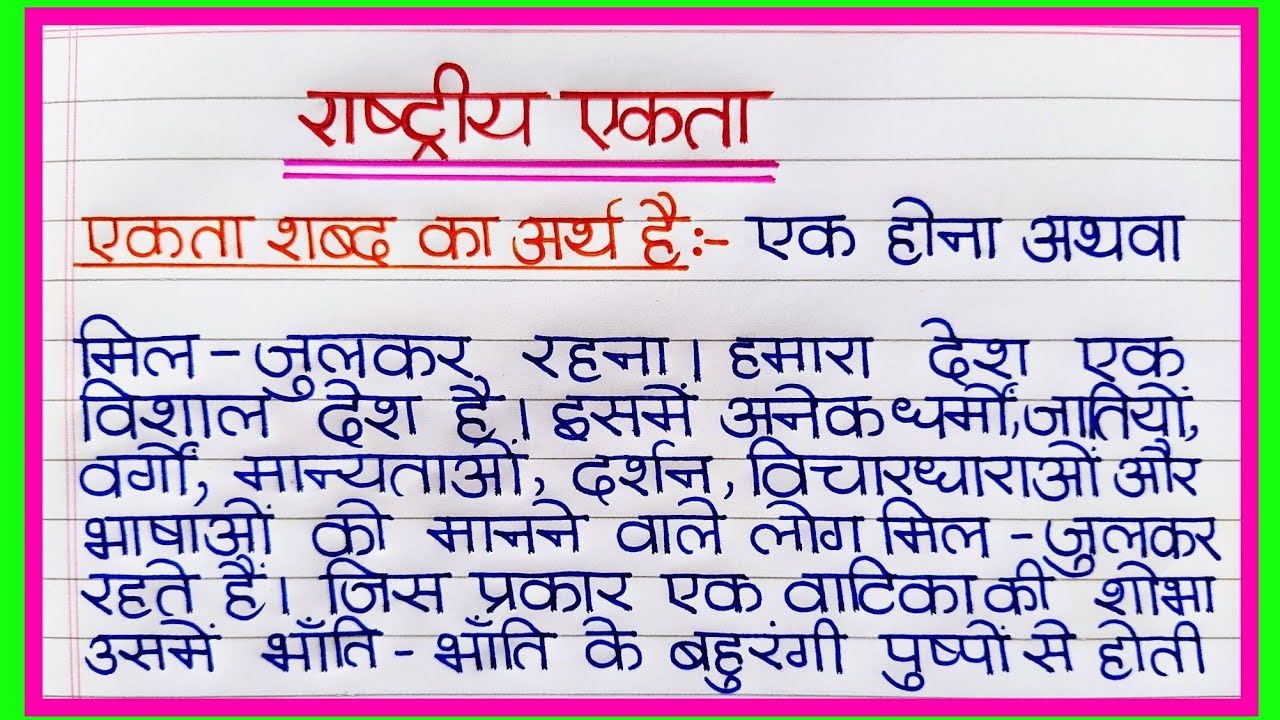 राष्ट्रीय एकता
एकता शब्द का अर्थ है:- एक होना अथवा
मिल-जुलकर रहना। हमारा देश एक
विशाल देश है। इसमें अनेक धर्मों, जातियों,
वर्गों, मान्यताओं, दर्शन, विचारधाराओं और
भाषाओं को मानने वाले लोग मिल-जुलकर
रहते हैं। जिस प्रकार एक वाटिका की शोभा
उसमें भाँति-भाँति के बहुरंगी पुष्पों से होती